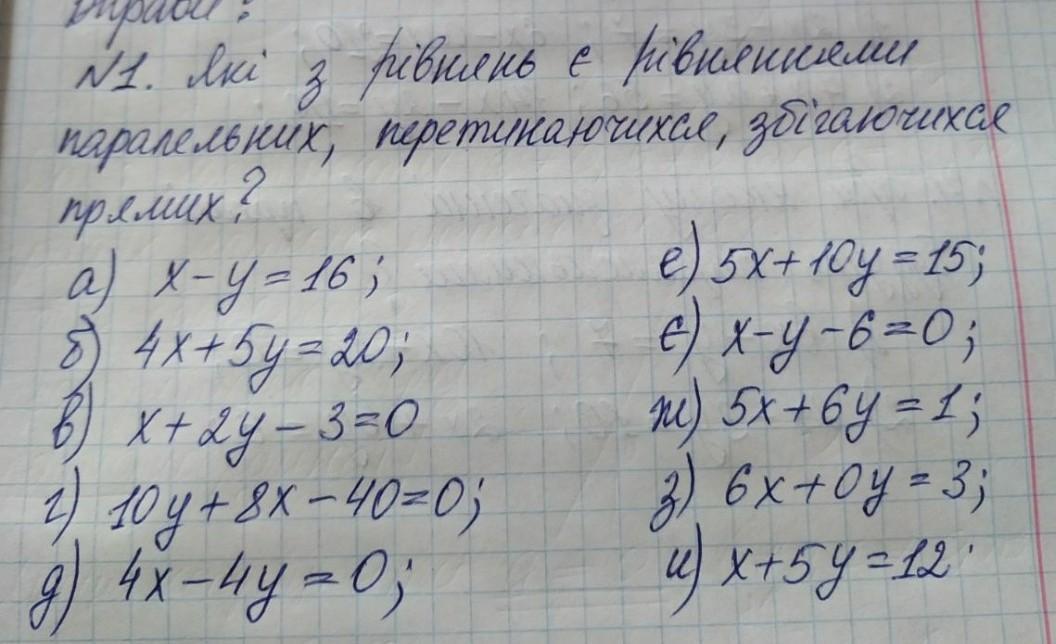 Вправи:
№1. Які з рівнянь є рівняннями
паралельних, перетинаючихся, збігаючихся
прямих?
а) x-y=16;
б) 4x+5y=20;
в) x+2y-3=0
г) 10y+8x-40=0;
д) 4x-4y=0;
е) 5x+10y=15;
є) x-y-6=0;
ж) 5x+6y=1;
з) 6x+0y=3;
и) x+5y=12.